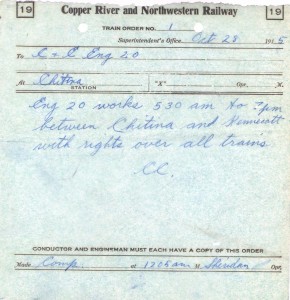 19 Copper River and Northwestern Railway 19
TRAIN ORDER NO. 1
Superintendent's Office Oct 28 1915
To C + C Eng 20
At Chitina "X" Opr. X.
STATION
Eng 20 works 530 am to 7pm
between Chitina and Kennecott
with rights over all trains
CC.
CONDUCTOR AND ENGINEMAN MUST EACH HAVE A COPY OF THIS ORDER
Made Comp. at 1205am M. Sheridan Opr.